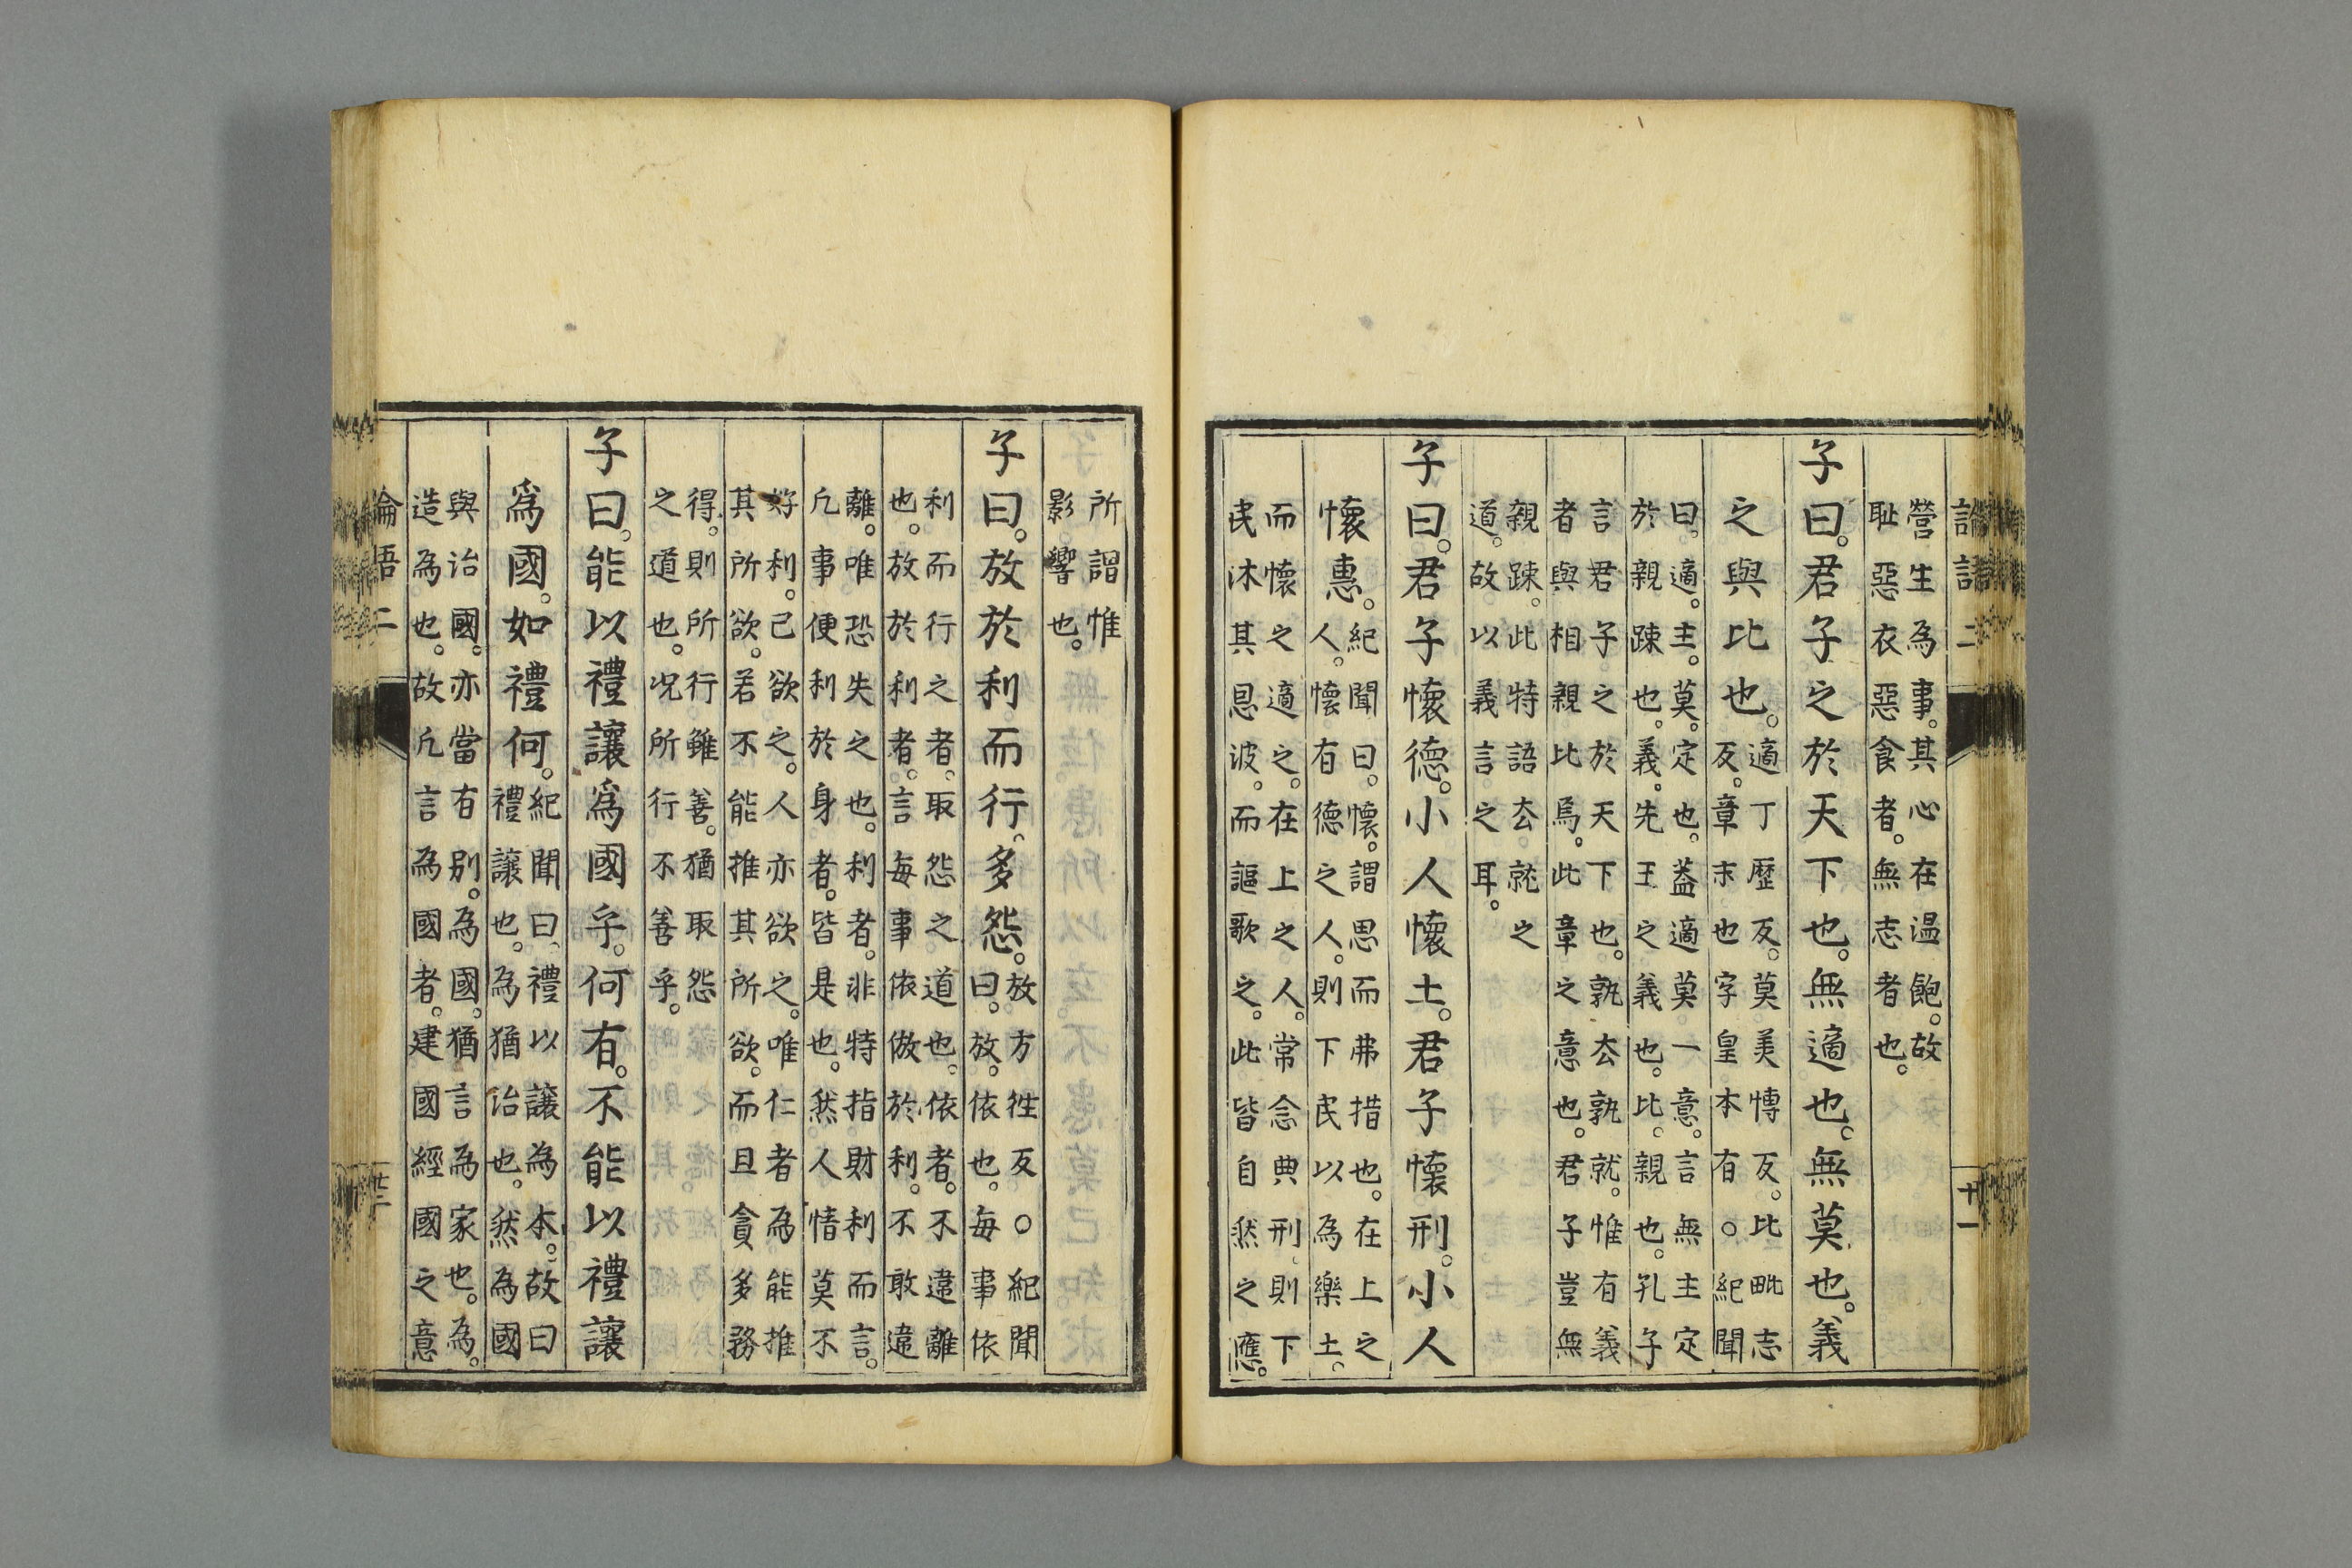 營生為事。其心在温飽。故
耻惡衣惡食者。無志者也。
子曰。君子之於天下也。無適也。無莫也。義
之與比也。
適丁歷反。莫美博反。比毗志
反。章末也字皇本有○紀聞
曰。適。主。莫。定也。蓋適莫一意。言無主定
於親踈也。義。先王之義也。比。親也。孔子
言君子之於天下也。孰去孰就。惟有義
者與相親比焉。此章之意也。君子豈無
親踈。此特語去就之
道。故以義言之耳。
子曰。君子懷德。小人懷土。君子懷刑。小人
懷惠。
紀聞曰。懷。謂思而弗措也。在上之
人。懷有德之人。則下民以為樂土。
而懷之適之。在上之人。常念典刑。則下
民沐其恩波。而謳歌之。此皆自然之應。
所謂惟
影響也。
子曰。放於利而行。多怨。
放方徃反○紀聞
曰。放。依也。每事依
利而行之者、取怨之道也。依者。不違離
也。放於利者。言每事依倣於利。不敢違
離。唯恐失之也。利者。非特指財利而言。
凢事便利於身者。皆是也。然人情莫不
好利。己欲之。人亦欲之。唯仁者為能推
其所欲。若不能推其所欲。而且貪多務
得。則所行雖善。猶取怨
之道也。况所行不善乎。
子曰。能以禮讓爲國乎。何有。不能以禮讓
爲國。如禮何。
紀聞曰、禮以讓為本。故曰
禮讓也。為猶治也。然為國
與治國。亦當有别。為國。猶言為家也。為。
造為也。故凢言為國者。建國經國之意
論語二